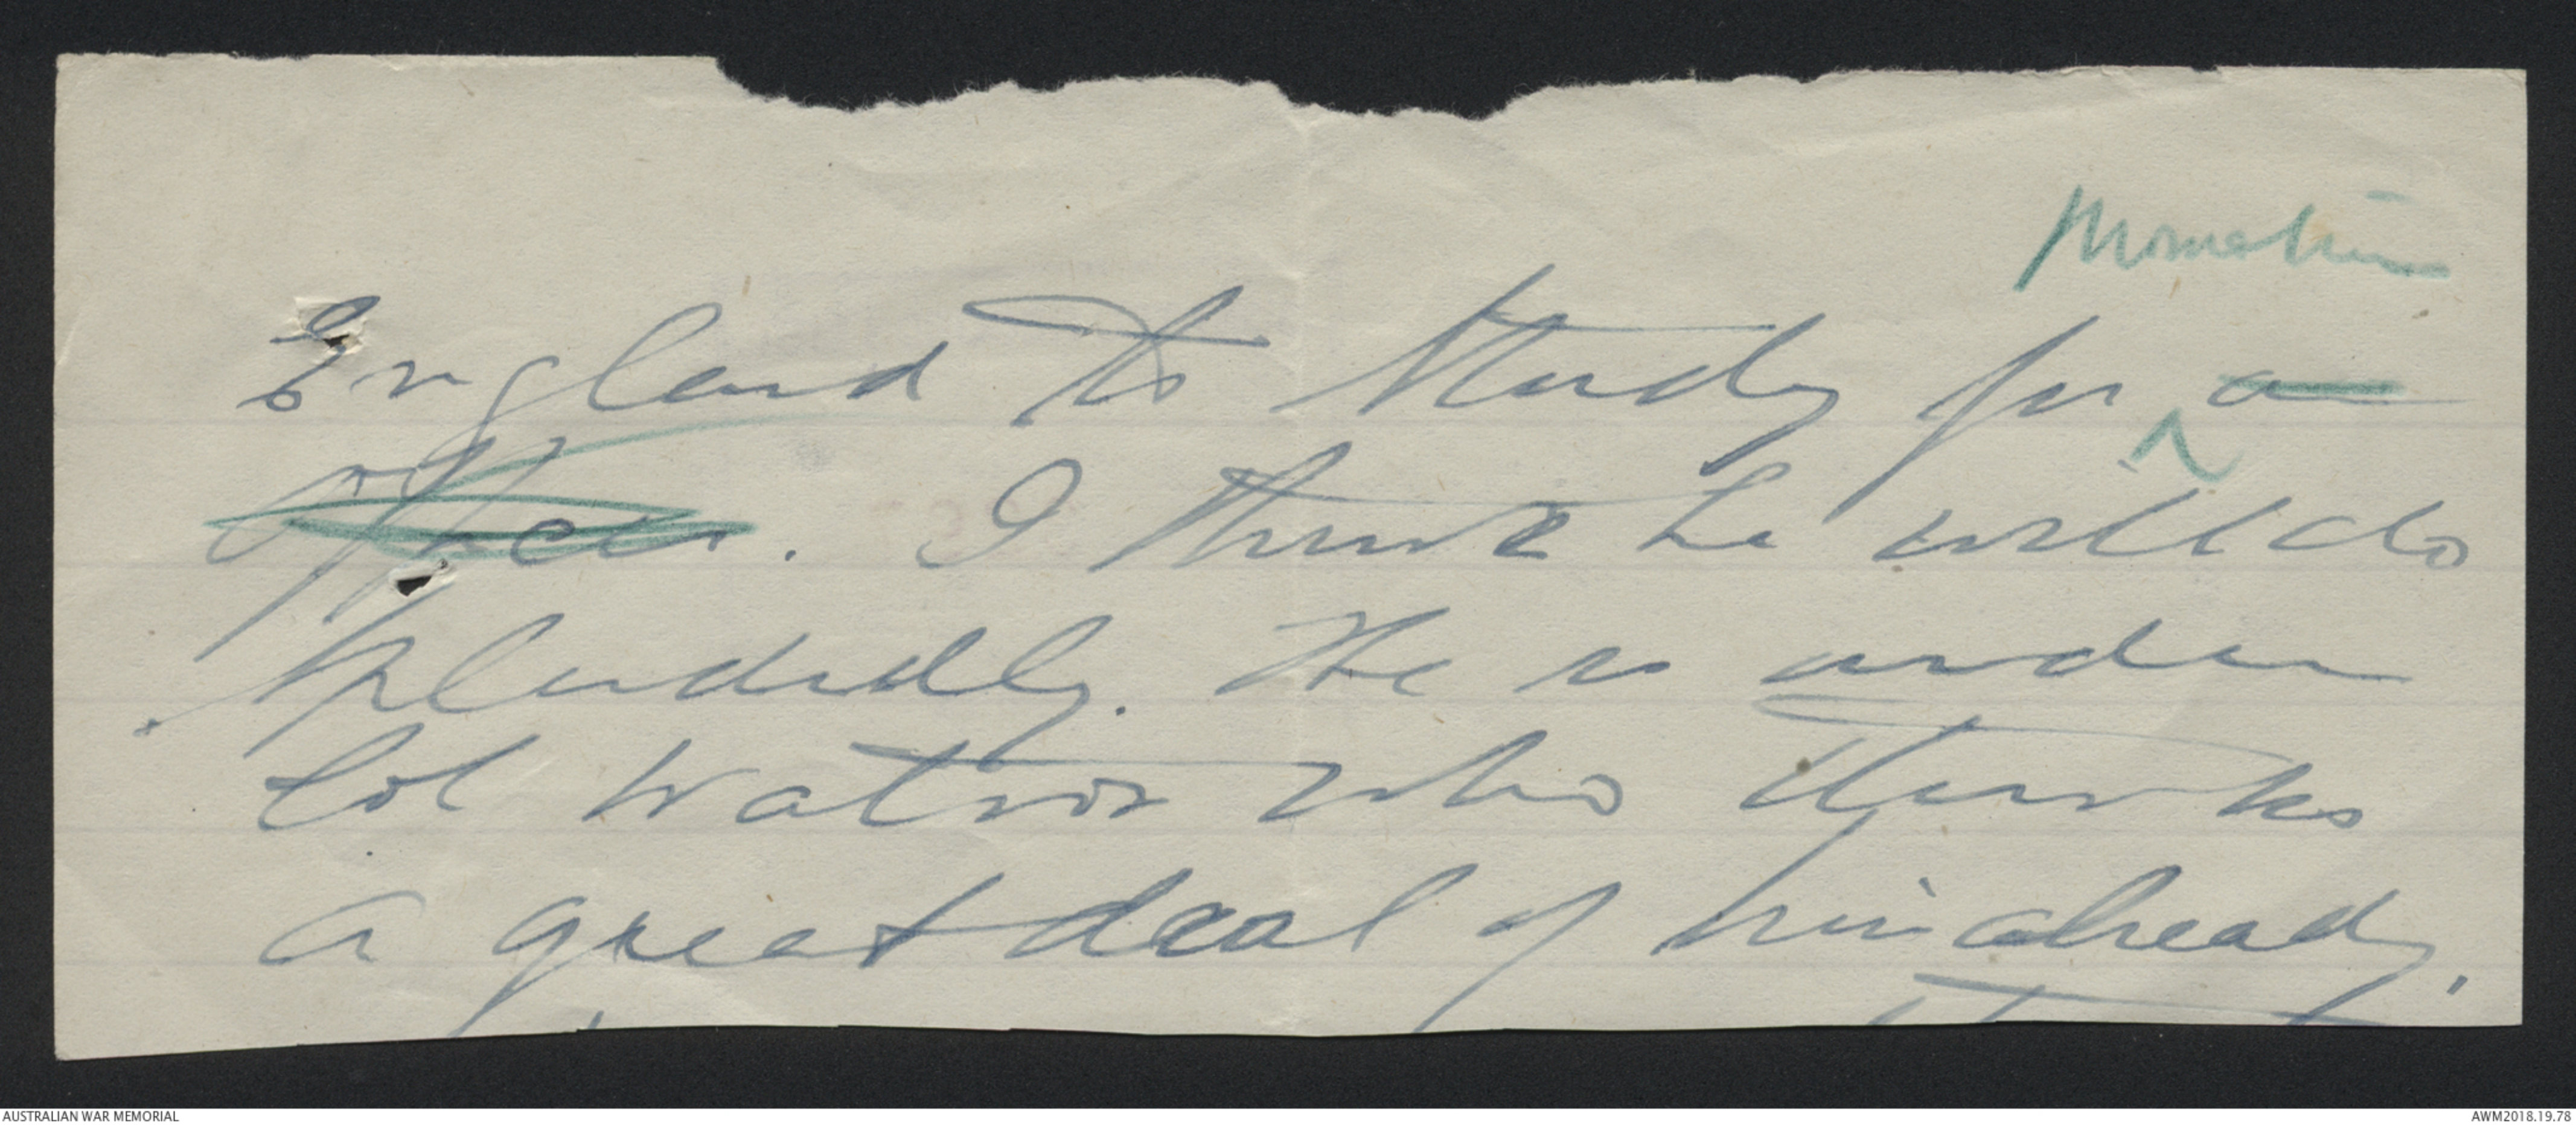 promotion
England to study for a
officer. I think he will do
splendidly. He is under
Col Watson who thinks
a great deal of him already.
AUSTRALIAN WAR MEMORIAL
AWM2018.19.78